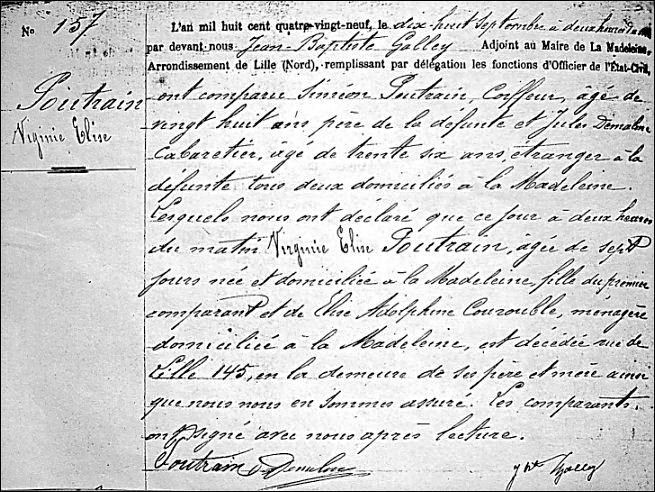 No 157
L'an mil huit cent quatre-vingt-neuf, le dix-huit septembre à deux heures
par devant nous Jean-Baptiste Galley Adjoint au Maire de La Madeleine,
Arrondissement de Lille (Nord), remplissant par délégation les fonctions d'Officier de l'État-Civil,
Poutrain
Virginie Elise
ont comparu Siméon Poutrain, Coiffeur, âgé de
vingt huit ans père de la défunte et Jules
Cabaretier, âgé de trente six ans, étranger à la
défunte tous deux domiciliés à la Madeleine.
Lesquels nous ont déclaré que ce jour à deux heures
du matin Virginie Elise Poutrain, âgée de sept
jours née et domiciliée à la Madeleine, fille du premier
comparant et de Elise Adolphine Courouble, ménagère
domiciliée à la Madeleine, est décédée rue de
Lille 145, en la demeure de ses père et mère ainsi
que nous nous en sommes assuré. Les comparants
ont signé avec nous après lecture.
Poutrain
Galley